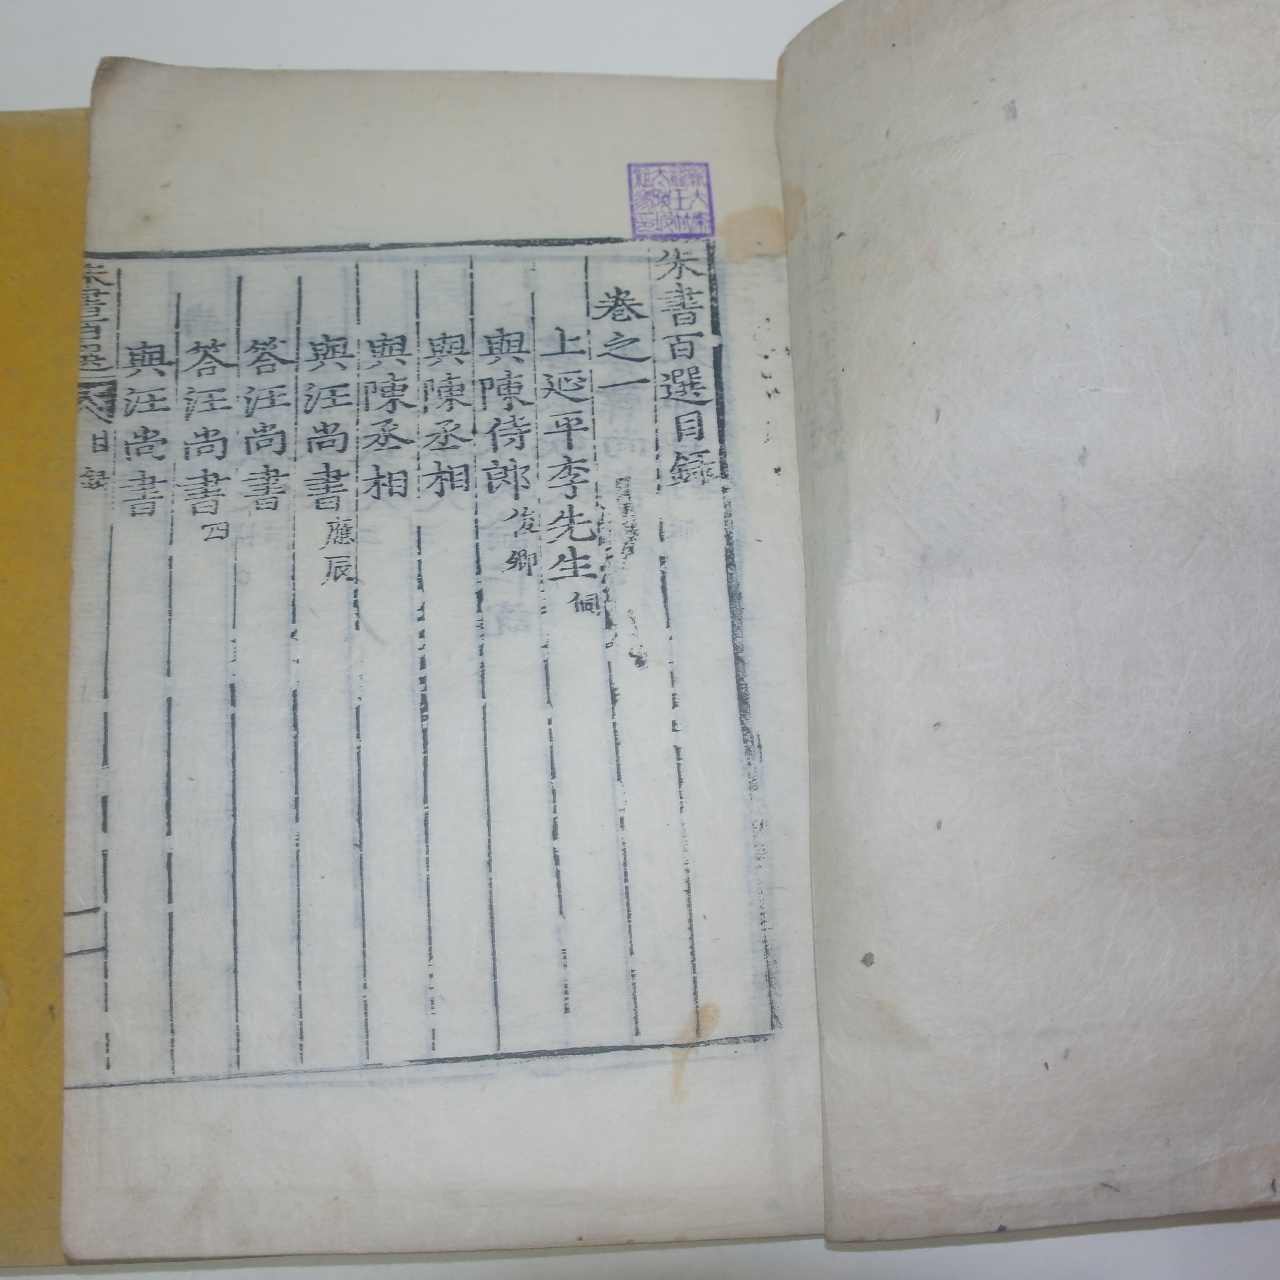 朱書百選目錄
卷之一
上延平李先生侗
與陳侍郎俊卿
與陳丞相
與陳丞相
與汪尚書應辰
答汪尚書
答汪尚書四
與汪尚書
朱書百選 目錄